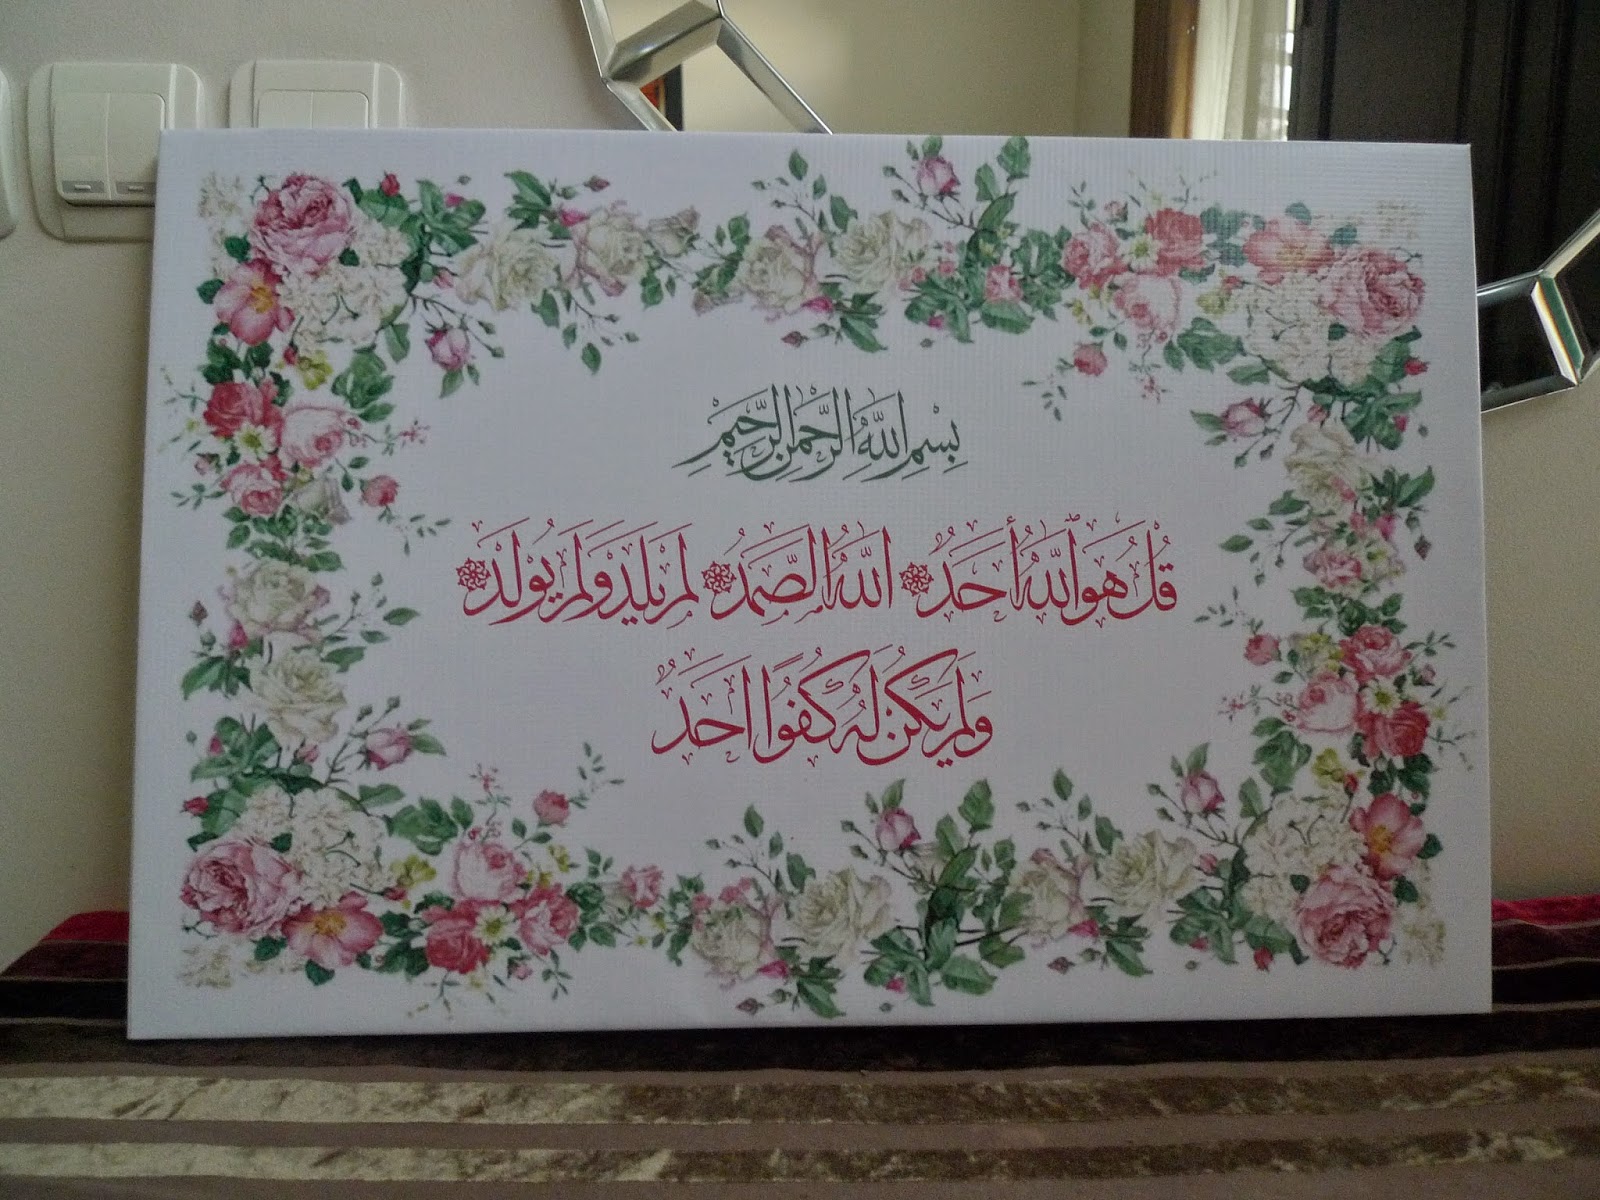 بِسْمِ اللَّهِ الرَّحْمٰنِ الرَّحِيمِ
قُلْ هُوَ ٱللَّهُ أَحَدٌ ۞ اَللَّهُ الصَّمَدُ ۞ لَمْ يَلِدْ وَلَمْ يُولَدْ ۞
وَلَمْ يَكُنْ لَهُ كُفُوًا اَحَدٌ